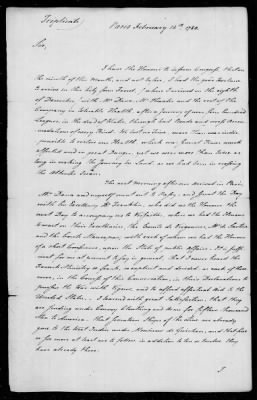 (Triplicate)
Paris February 15th 1780
Sir,
I have the Honour to inform Congress that on
the ninth of this Month, and not before, I had the good Fortune
to arrive in this City from Ferrol, where I arrived on the eighth
of December, with Mr. Dana, Mr. Thaxter and the rest of the
Company in tolerable Health after a Journey of near four hundred
Leagues, in the dead of Winter, through bad Roads and worse Accom-
modations of every Kind. We lost no time, more than was indis-
pensible to restore our Health, which was several Times much
affected and in great danger, yet we were more than twice as
long in making the Journey by Land, as we had been in crossing
the Atlantic Ocean.
The next morning after our Arrival in Paris,
Mr. Dana and myself went out to Passy, and spent the Day
with his Excellency Mr. Franklin, who did us the Honour the
next Day to accompany us to Versailles, where we had the Honour
to wait on their Excellencies, the Comte de Vergennes, Mr. de Sartine
and the Comte Maurepas, with each of whom we had the Honour
of a short Conference, upon the State of public Affairs. It is suffi-
cient for me at present to say in general, that I never heard the
French Ministry so frank, explicit and decided, as each of these
were, in the Course of this Conversation, in their Declarations to
prosecute the War with Vigour, and to afford effectual Aid to the
United States. I learned with great Satisfaction, that they
are sending under Convoy, Cloathing and Arms for fifteen thousand
Men to America. That seventeen Ships of the Line were already
gone to the West Indies under Monsieur de Guichen, and that five
or six more at least are to follow in addition to ten or twelve they
have already there.
I